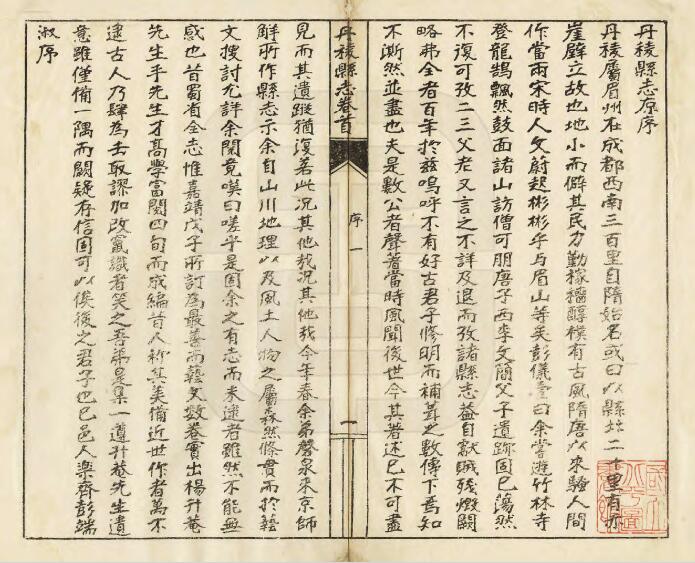 丹稜縣志原序
丹稜屬眉州在成都西南三百里自隋始名或曰以縣北二十里有赤
崖壁立故也地小而僻其民力勤稼穡醇樸有古風隋唐以來騷人間
作當兩宋時人文蔚起彬彬乎與眉山等矣彭儀壹曰余嘗遊竹林寺
登龍鵠飄然鼓面諸山訪僧可朋唐子西李文簡父子遺跡固已蕩然
不復可攷二三父老又言之不詳及退而攷諸縣志蓋自獻賊殘燬闕
略弗全者百年於茲嗚呼不有好古君子修明而補葺之數傳下焉知
不漸然並盡也夫是數公者聲著當時風聞後世今其著述已不可盡
丹稜縣志卷首
序
一
見而其遺蹤猶復若此況其他哉況其他哉今年春余弟磬泉來京師
觧所作縣志示余自山川地理以及風土人物之屬森然條貫而於藝
文搜討尤詳余閱竟嘆曰嗟乎是固余之有志而未逮者雖然不能無
感也昔蜀省全志惟嘉靖戊子所訂為最善而藝文數卷實出楊升菴
先生手先生才高學富閱四旬而成編昔人稱其美備近世作者萬不
逮古人乃肆為去取謬加改竄識者笑之吾弟是集一遵升菴先生遺
意雖僅備一隅而闕疑存信固可以俟後之君子也已邑人樂齊彭端
淑序